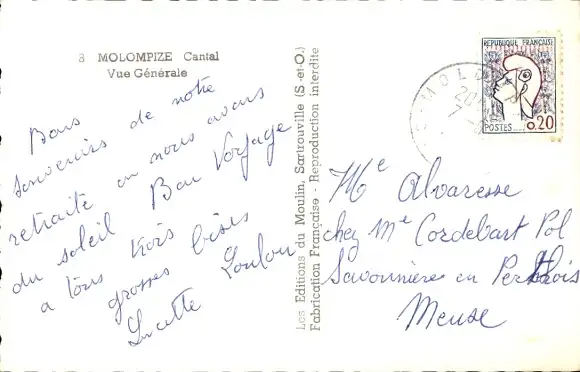 8 MOLOMPIZE Cantal
Vue Générale
Bons
souvenirs de notre
retraite ou nous avons
du soleil Bon Voyage
a tous trois
grosses bises
Lucette Loulou
Les Editions du Moulin, Sartrouville (S.-et-O.)
Fabrication Française - Reproduction interdite
REPUBLIQUE FRANÇAISE
POSTES 0,20
MOLO
20
Me Alvaresse
chez Me Cordebart Pol
Savonnières en Perthois
Meuse